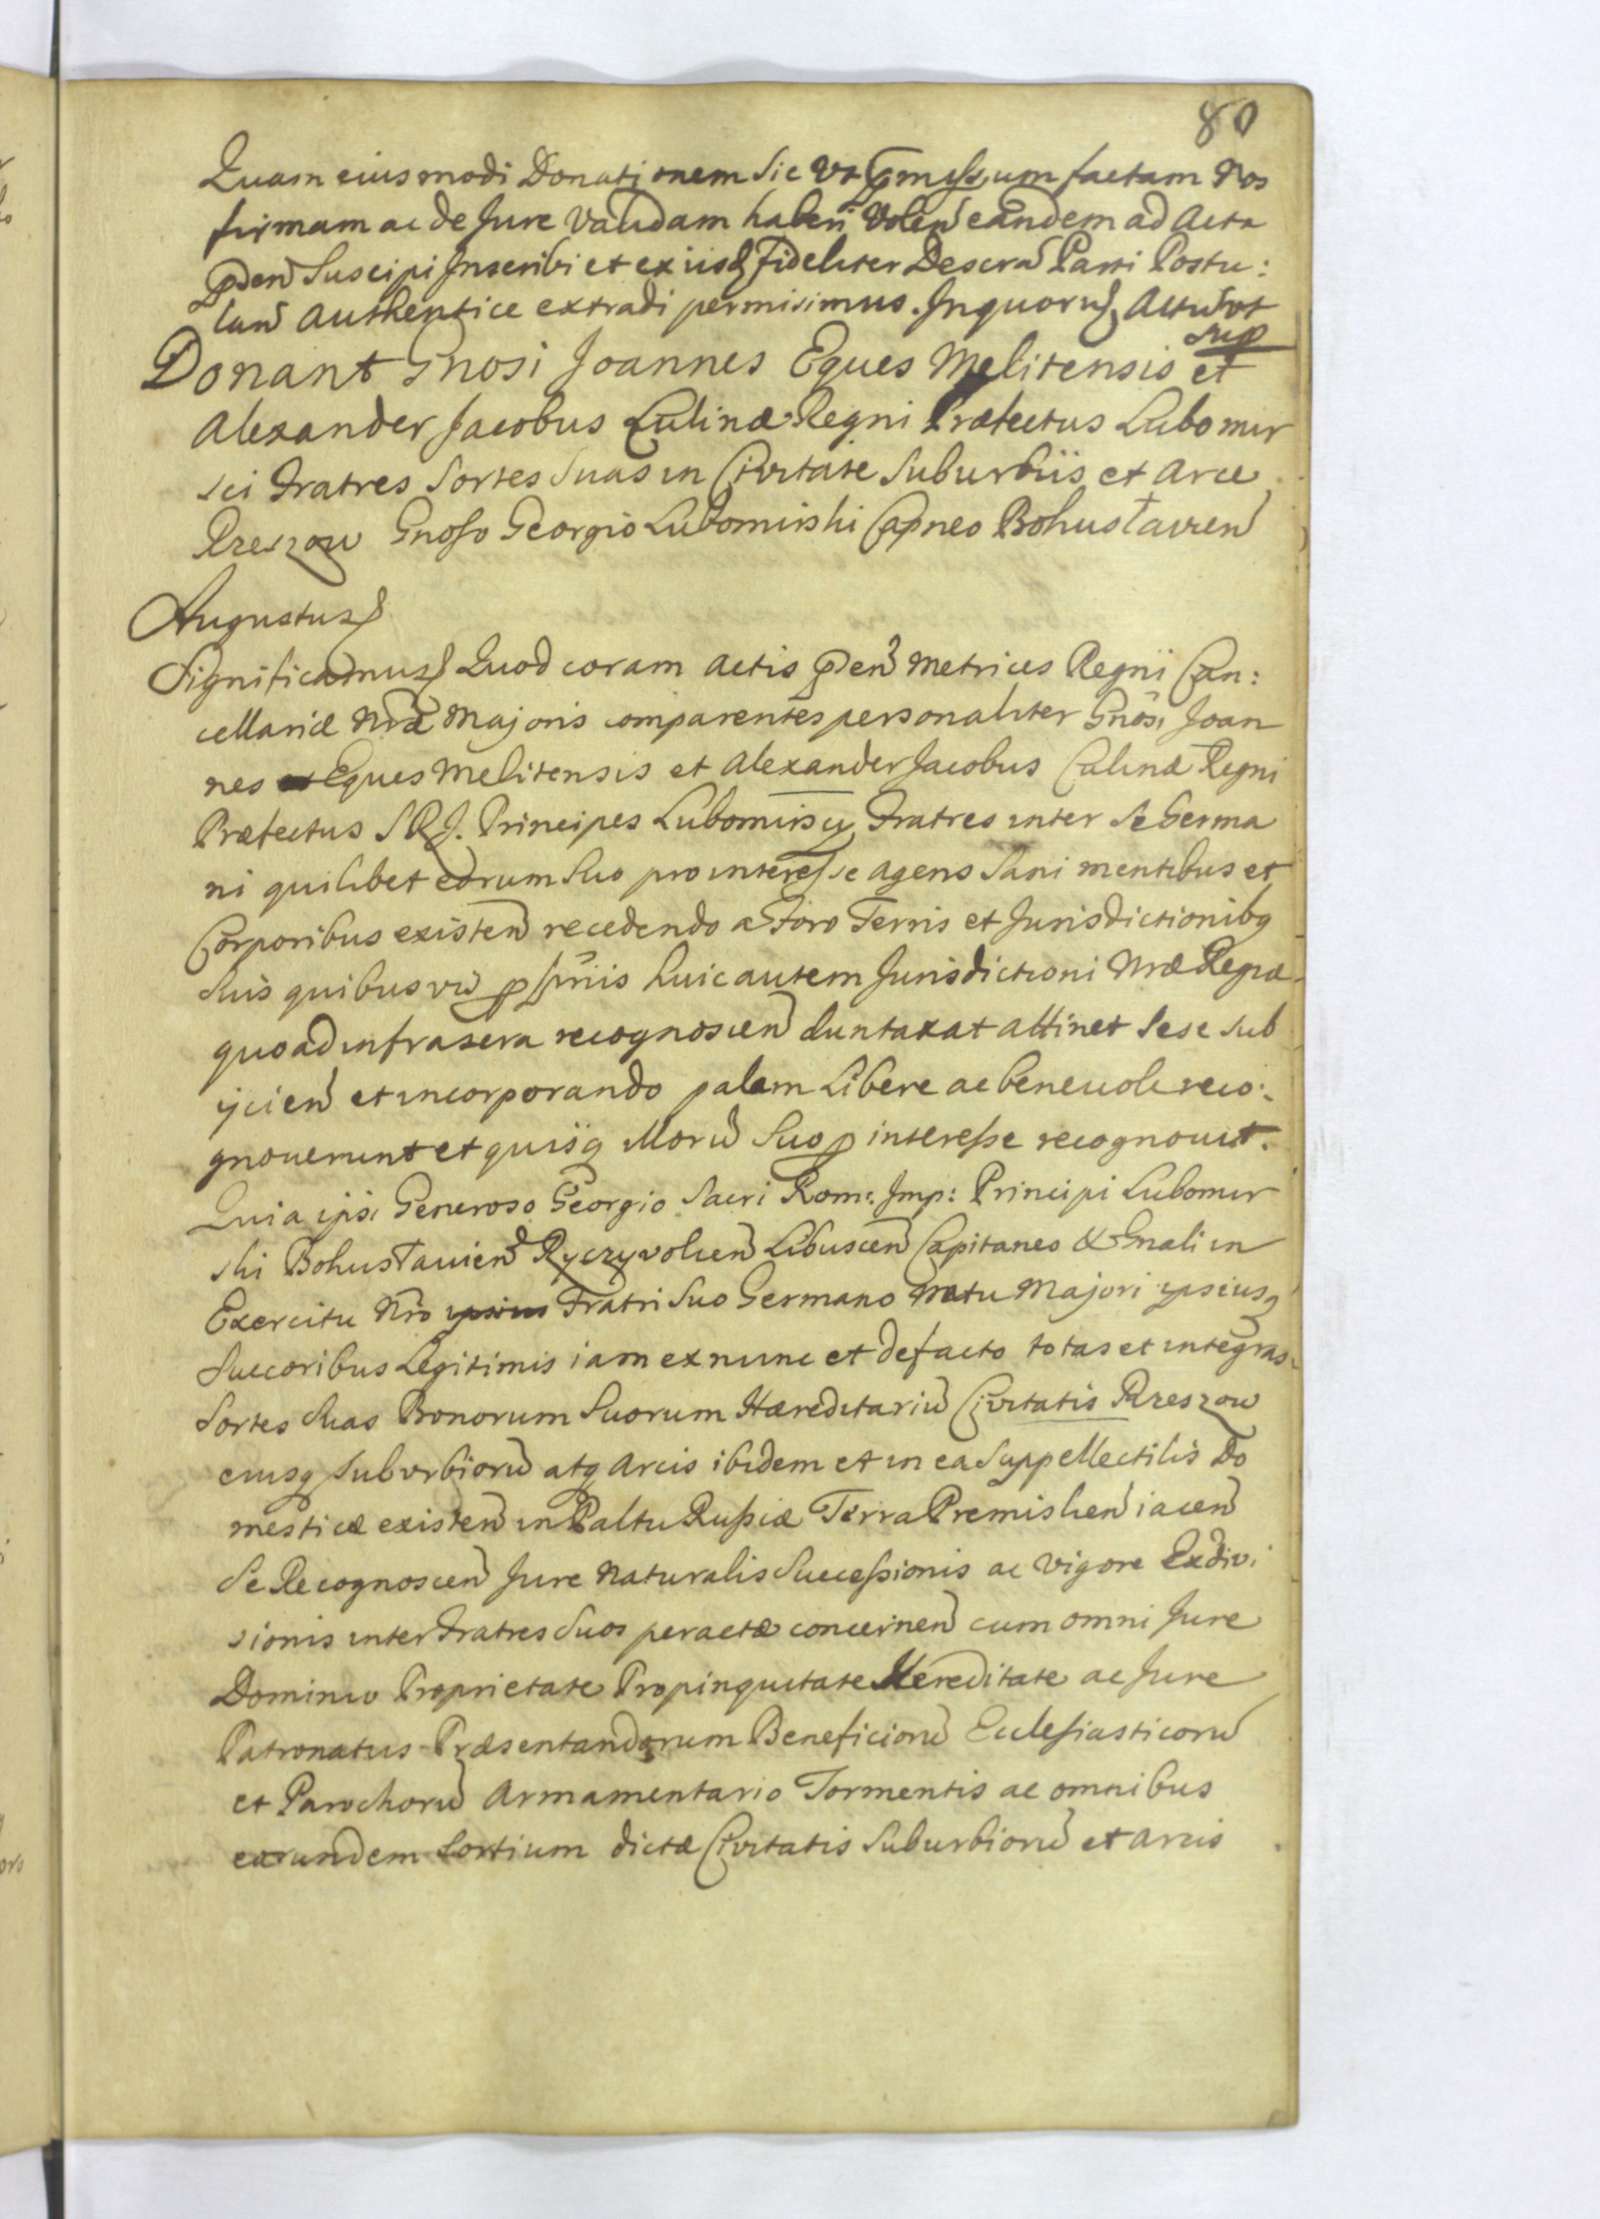 80
Quam eiusmodi Donationem Sic ut p̃missum factam Nos
firmam ac de Jure Validam haberi Volen̄ eandem ad Acta
p̃den̄ Suscipi Inscribi et ex iisd Fideliter Descrâ Parti Postu:
lan̄ Authentice extradi permisimus. In quorum Actu ut
sup
Donant Gnosi Joannes Eques Melitensis et
Alexander Jacobus Culinæ Regni Præfectus Lubomir
sci Fratres Sortes Suas in Civitate Suburbiis et Arce
Rzeszow Gnoso Georgio Lubomirski Capneo Bohuslavien̄
Augustus
Significamus Quod coram Actis p̃den̄ Metrices Regni Can:
cellariæ Nræ Majoris comparentes personaliter Gnosi Joan
nes Eques Melitensis et Alexander Jacobus Culinæ Regni
Præfectus S R J. Principes Lubomirscy Fratres inter Se Germa
ni quilibet eorum Suo pro interesse agens Sani mentibus et
Corporibus existen̄ recedendo a Foro Terris et Jurisdictionibq
Suis quibusvis huic autem Jurisdictioni Nræ Regiæ
quoad infrascra recognoscen̄ duntaxat attinet Sese Sub
ijcien̄ et incorporando palam Libere ac beneuole reco:
gnouerunt et quisq illorū Suo p interesse recognouit.
Quia ipsi Generoso Georgio Sacri Rom: Imp: Principi Lubomir
ski Bohuslauien̄ Ryczyvolien̄ Libuscen̄ Capitaneo & Gnali in
Exercitu Nro Fratri Suo Germano Natu Majori ipsiusq
Succoribus Legitimis iam ex nunc et de facto totas et integras
Sortes Suas Bonorum Suorum Hæreditariū Civitatis Rzeszow
eiusq Suburbiorū atq Arcis ibidem et in ea Suppellectilis Do
mesticæ existen̄ in Paltu Russiæ Terra Premislien̄ iacen̄
Se Recognoscen̄ Jure Naturalis Successionis ac Vigore Exdivi
sionis inter Fratres Suos peractæ concernen̄ cum omni Jure
Dominio Proprietate Propinquitate Hereditate ac Jure
Patronatus Præsentandorum Beneficiorū Ecclesiasticorū
et Parochorū Armamentario Tormentis ac omnibus
earundem Sortium dictæ Civitatis Suburbiorū et Arcis